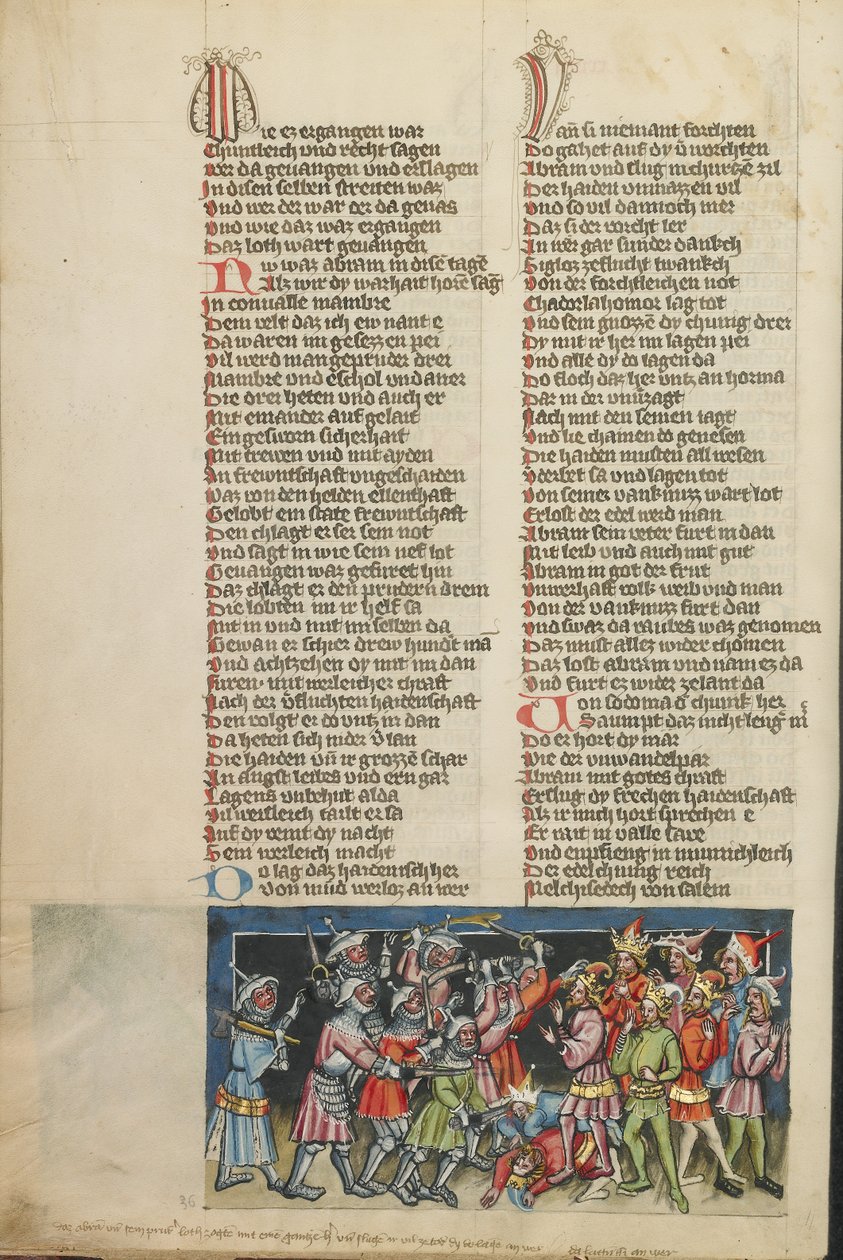 Wie ez ergangen war
Chuntleich vnd recht sagen
Wer da geuangen vnd erslagen
In disen selben streiten waz
Vnd wer der war der da genas
Vnd wie daz waz ergangen
Daz loth wart geuangen
Nw waz abram in disē tagē
Alz wir dy warhait horē sag
In conualle mambre
Dem velt daz ich ew nant e
Da waren im gesezzen pei
Vil werd man geprüder drei
Mambre vnd eschol vnd aner
Die drei heten vnd auch er
Mit einander auf gelait
Ein gesworn sicherhait
Mit trewen vnd mit ayden
An frewntschaft vngeschaiden
Waz von den helden ellenthaft
Gelobt ein state frewntschaft
Den chlagt er ser sein not
Vnd sagt in wie sein nef lot
Geuangen waz gefuret hin
Daz chlagt er den prudern drein
Die lobten im ir helf sa
Mit in vnd mit im selben da
Gewan er schier drew hundt ma
Vnd achtzehen dy mit im dan
Furen mit werleicher chraft
Nach der v̄fluchten haidenschaft
Den volgt er do vntz in dan
Da heten sich nider v̄lan
Die haiden vn̄ ir grozzē schar
An angst leibes vnd ern gar
Lagens vnbehut alda
Vil weisleich tailt er sa
Auf dy veint dy nacht
Sein werleich macht
Do lag daz haidenisch her
Von mud werloz an wer
Wan̄ si niemant forchten
Do gahet auf dy v̄worchten
Abram vnd slug in churtzē zil
Der haiden vnmazzen vil
Vnd so vil dannoch mer
Daz si der vorcht ler
In wer gar sunder dankch
Sigloz zeflucht twankch
Von der forchtleichen not
Chadorlahomor lag tot
Vnd sein gnozzē dy chunig drei
Dy mit ir her im lagen pei
Vnd alle dy do lagen da
Do floch daz her vntz an horma
Dar in der vnuerzagt
Nach mit den seinen iagt
Vnd lie chainen do genesen
Die haiden musten all wesen
V̄derbet sa vnd lagen tot
Von seiner vanknuzz wart lot
Erlost der edel werd man
Abram sein veter furt in dan
Mit leib vnd auch mit gut
Abram in got der frut
Vnwerhaft volk weib vnd man
Von der vanknuzz furt dan
Vnd swaz da raubes waz genomen
Daz must allez wider chomen
Daz lost abram vnd nam ez da
Vnd furt ez wider ze lant da
Von sodoma d̄ chunk her
Saumpt daz nicht lenḡ mer
Do er hort dy mar
Wie der vnwandelpar
Abram mit gotes chraft
Erslug dy frechen haidenschaft
Alz ir mich hort sprechen e
Er rait in valle save
Vnd enpfieng in minnichleich
Der edel chunig reich
Melchisedech von salem
36
daz abrā vn̄ sein prud̄ loth